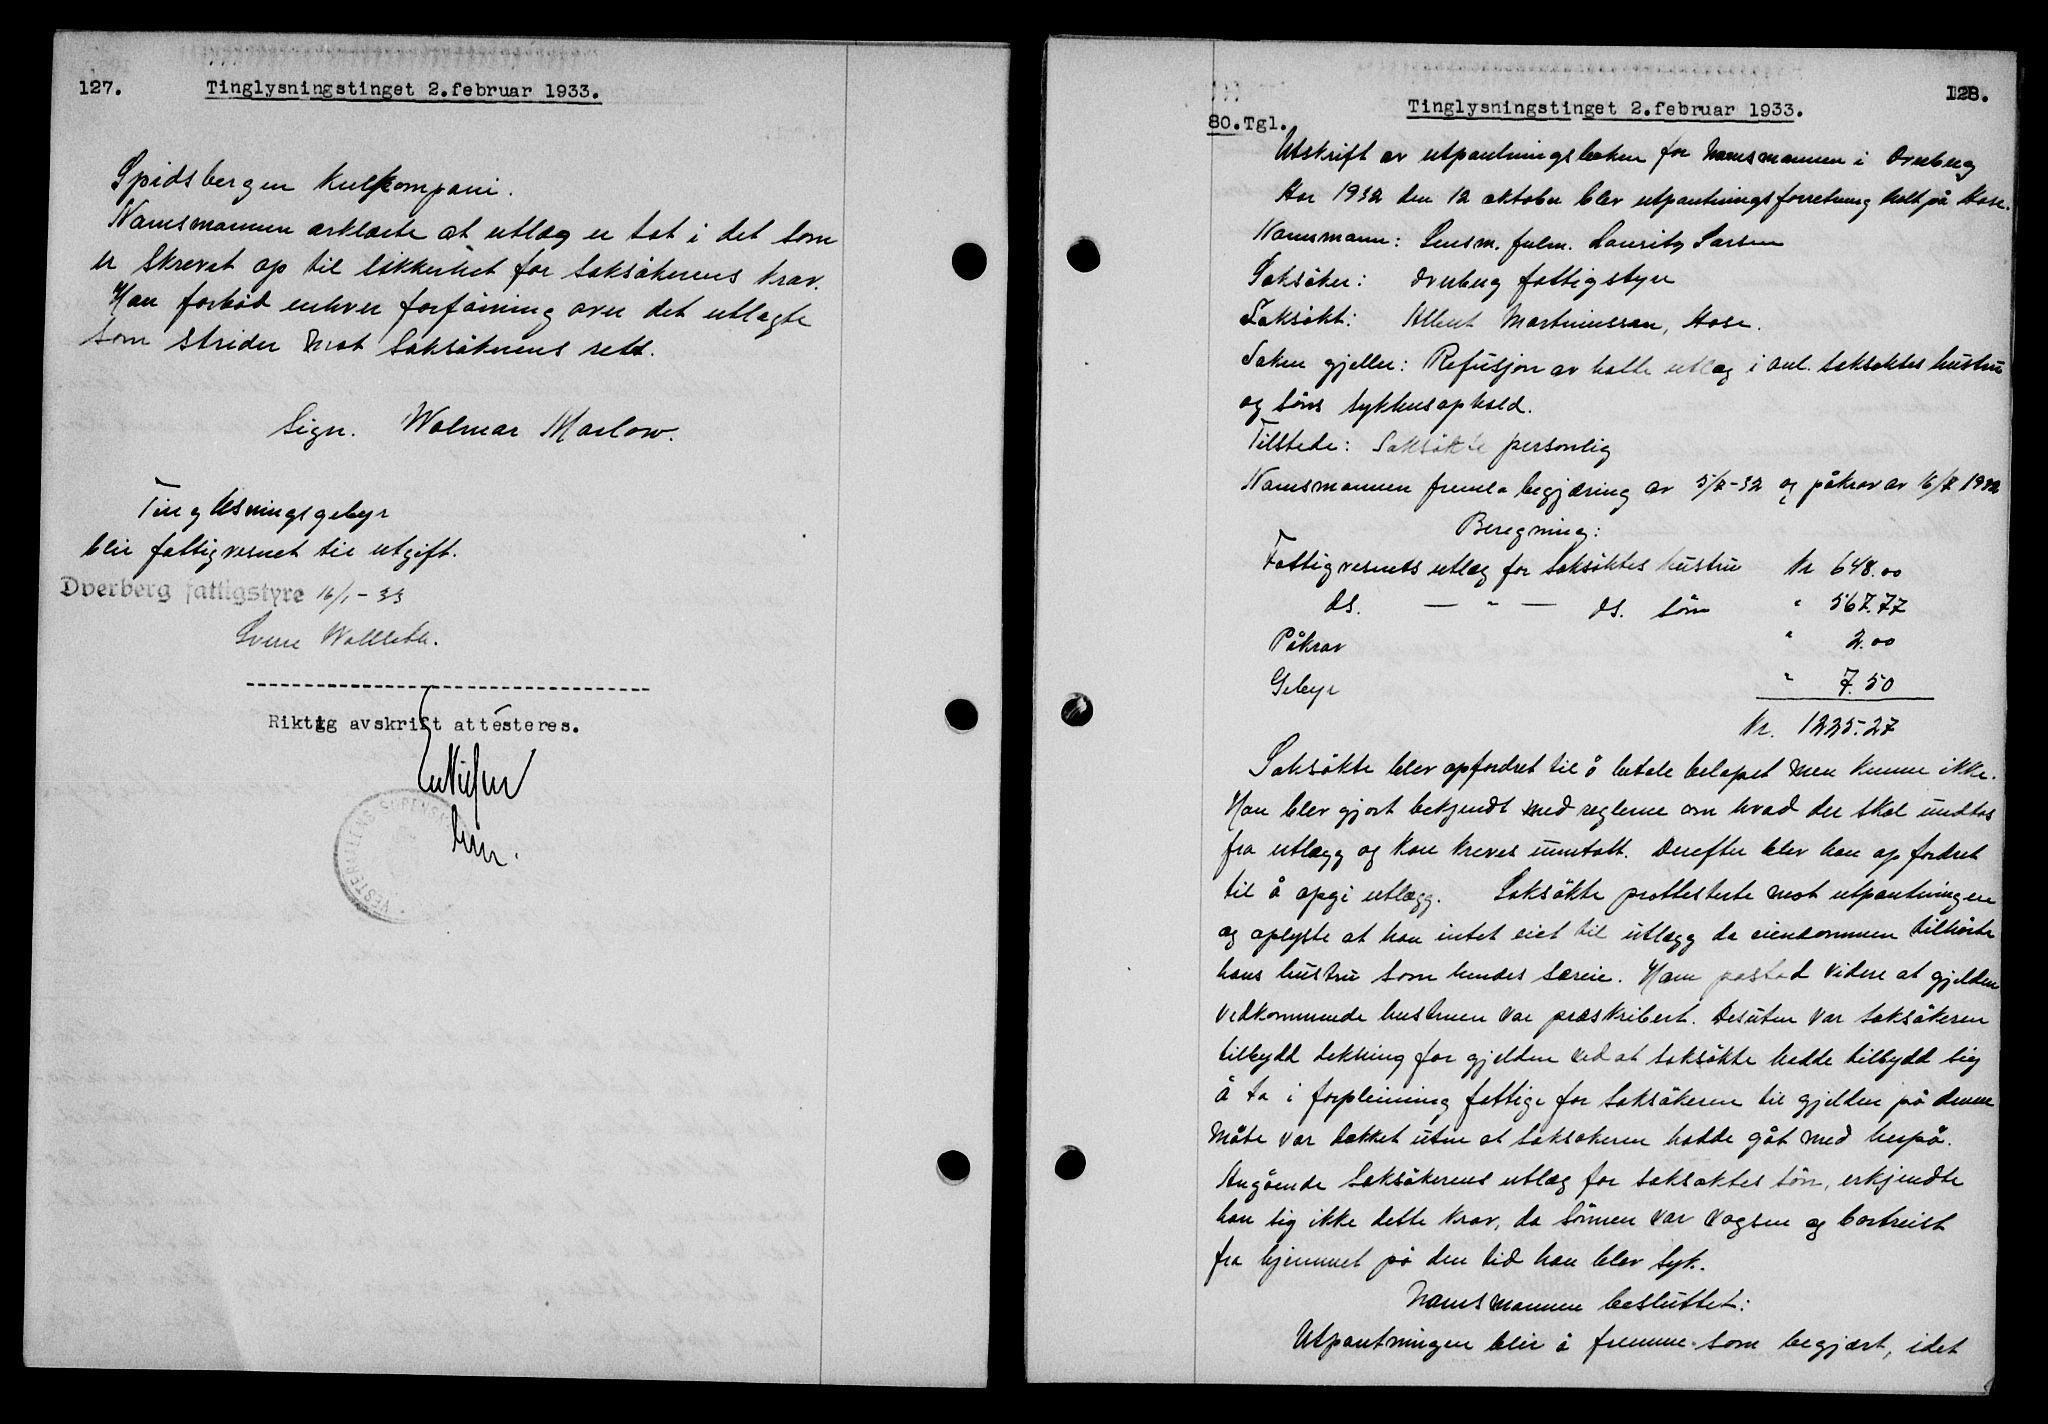 127.
Tinglysningstinget 2.februar 1933.
Spidsbergen kulkompani.
Namsmannen erklærte at utlæg er tat i det som
er skrevet op til sikkerhet for saksökerens krav.
Han forbød enhver forföining over det utlagte
som strider mot saksökerens rett.
Sign. Wolmar Marlow.
Tinglysningsgebyr
blir fattigvesnet til utgift.
Dverberg fattigstyre 16/1-33
Sverre
Riktig avskrift attesteres.
VESTERÅLENS SORENSKR
128.
Tinglysningstinget 2.februar 1933.
80.Tgl.
Utskrift av utpantningsboken for Namsmannen i Dverberg
Aar 1932 den 12 oktober blev utpantningsforretning holt på Aase.
Namsmann: Lensm. fulm. Lauritz Larsen
Saksöker: Dverberg fattigstyre
Saksökt: Albert Martinussen, Aase.
Saken gjeller: Refusjon av hatte utlæg i anl. saksöktes hustru
og söns sykhusophold.
Tilstede: Saksökte personlig
Namsmannen fremla begjæring av 5/7-32 og påkrav av 16/7 1932
Beregning:
Fattigvesnets utlæg for saksöktes hustru Kr 648.00
ds. — " — ds. sön " 567.77
Påkrav " 2.00
Gebyr " 7.50
Kr. 1225.27
Saksökte blev opfordret til å betale belöpet men kunne ikke.
Han blev gjort bekjendt med reglerne om hvad der skal undtas
fra utlægg og kan kreves unntatt. Derefter blev han opfordret
til å opgi utlægg. Saksökte prottesterte mot utpantningen
og oplyste at han intet eiet til utlægg da eiendommen tilhörte
hans hustru som hendes særeie. Han påstod videre at gjelden
vedkommende hustruen var præskribert. Desuten var saksökeren
tilbydd dekning for gjelden ved at saksökte hadde tilbydd sig
å ta i forpleining fattige for saksökeren til gjelden på denne
måte var dækket uten at saksökeren hadde gåt med herpå.
Angående saksökerens utlæg for saksöktes sön, erkjendte
han sig ikke dette krav, da sönnen var voksen og bortreist
fra hjemmet på den tid han blev syk.
Namsmannen besluttet:
Utpantningen blir å fremme som begjært, idet